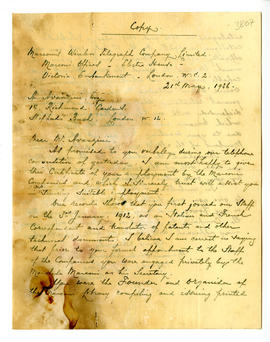 Copy
3867
Marconi's Wireless Telegraph Company Limited.
Marconi Offices - Electra House -
Victoria Embankment - London W.C.2
21st May, 1936.
18, Richmond Gardens,
Shepherd's Bush - London W.12.
Dear Mr
As promised to you verbally during our telephone
conversation of yesterday, I am most happy to give
this Certificate of your employment by the Marconi
Companies and which I sincerely trust will assist you
suitable employment.
Our records show that you first joined our Staff
on the 3rd January, 1912, as an Italian and French
Correspondent and translator of patents and other
technical documents. I believe I am correct in saying
that prior to your formal appointment to the Staffs
of the Companies you were engaged privately by the
Marconi as his Secretary.
You were the Founder and organiser of
the Marconi library compiling and printed